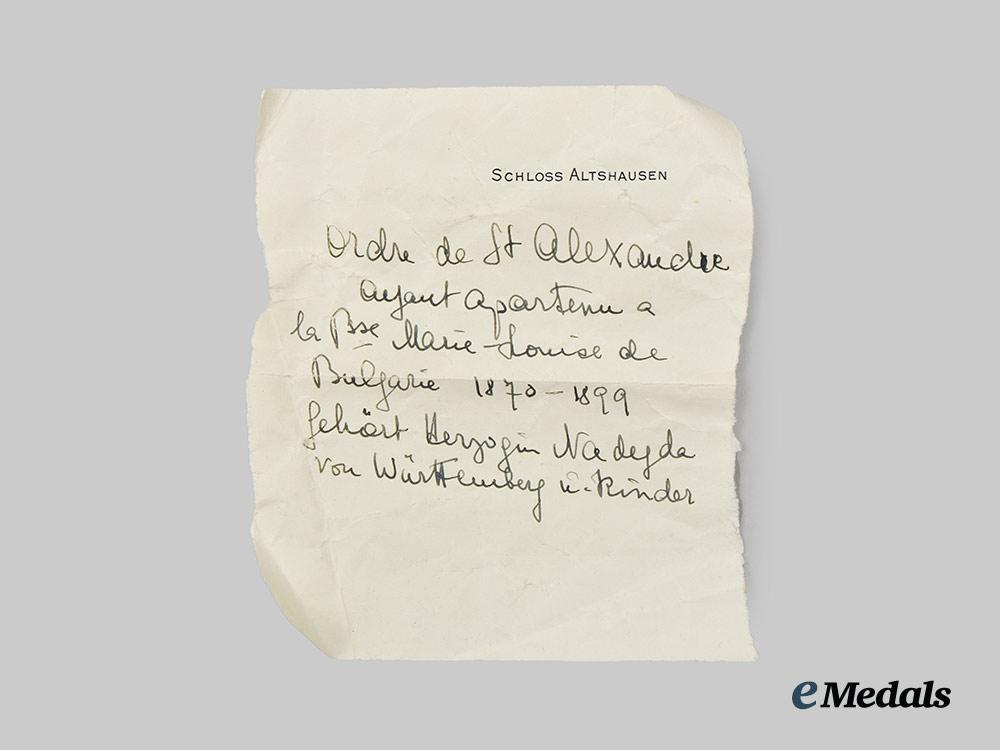 SCHLOSS ALTSHAUSEN
Ordre de St Alexandre
ayant apartenu a
la Psse Marie-Louise de
Bulgarie 1870-1899
Gehört Herzogin Nadejda
von Württemberg u. Kinder
eMedals